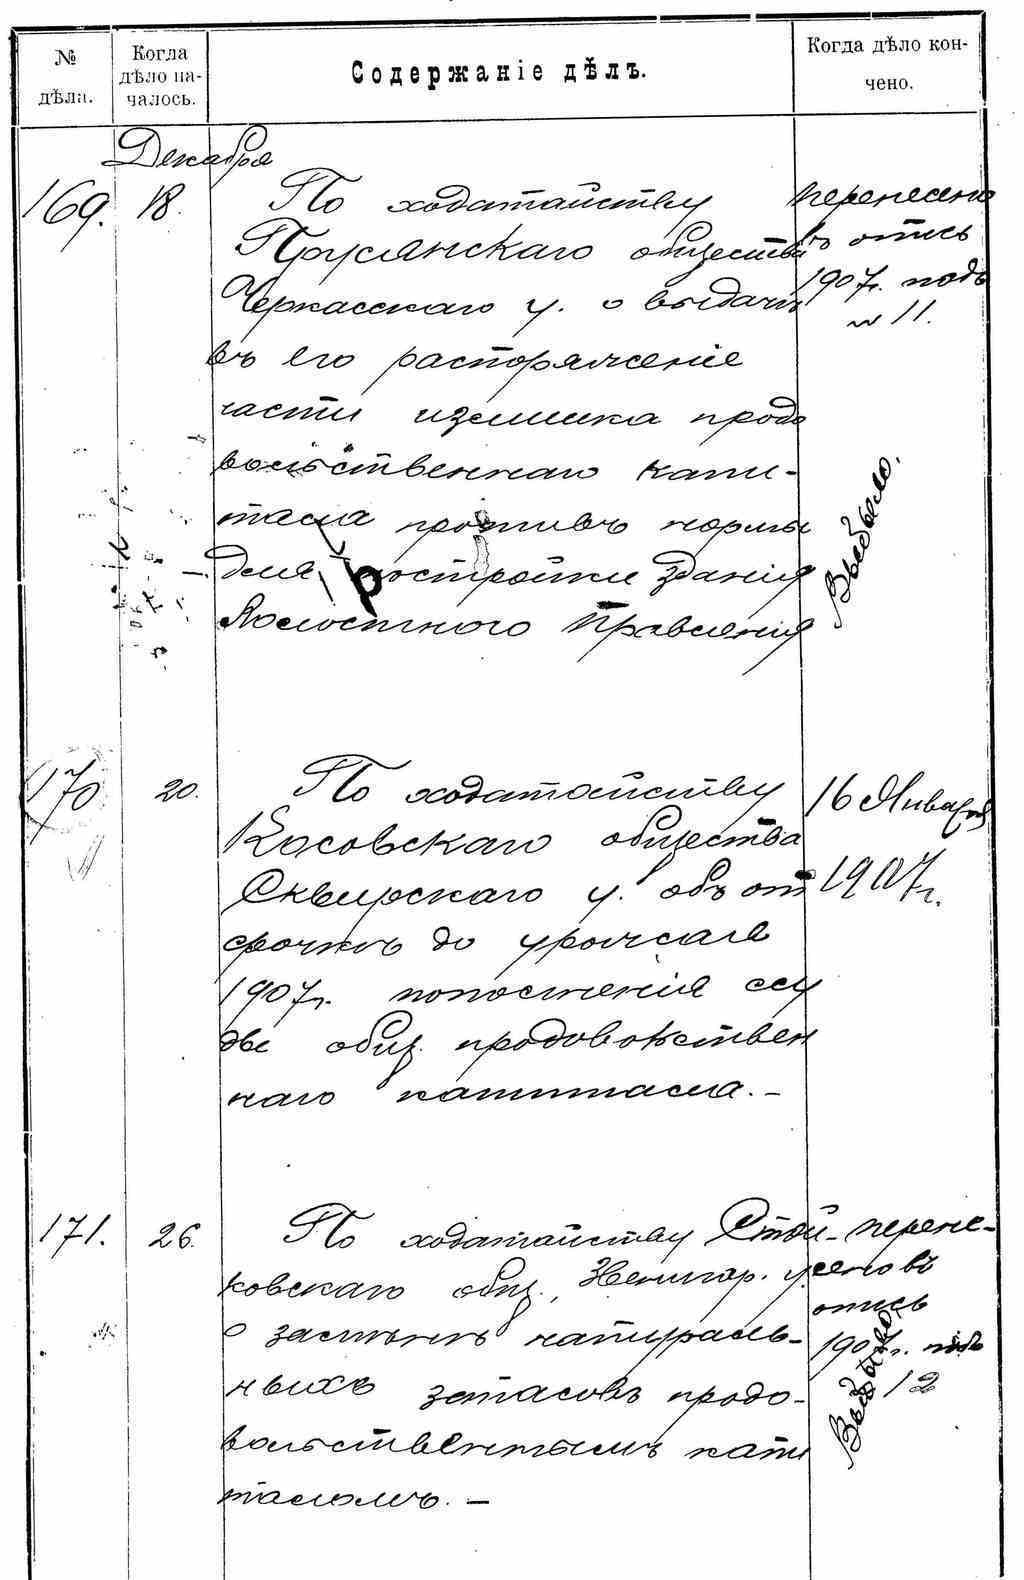 № дѣла.
Когда дѣло началось.
Содержаніе дѣлъ.
Когда дѣло кончено.
Декабря
169. 18. По ходатайству
Прусянскаго общества
Черкасскаго у. о выдачѣ
въ его распоряженіе
части излишка продо
вольственнаго капи-
тала противъ нормы
для постройки зданія
Волостного Правленія
перенесено
въ опись
1907г. подъ
№ 11.
Выбыло.
170 20. По ходатайству
Косовскаго общества
Сквирскаго у. объ от
срочкѣ до урожая
1907г. пополненія ссу
ды общ. продовольствен
наго капитала. -
16 Января
1907г.
171. 26. По ходатайству Стой-
ковскаго общ., Звенигор. у.
о замѣнѣ натураль-
ныхъ запасовъ продо-
вольственнымъ капи
таломъ. -
перене-
сено въ
опись
1907г. подъ
12
Выбыло.